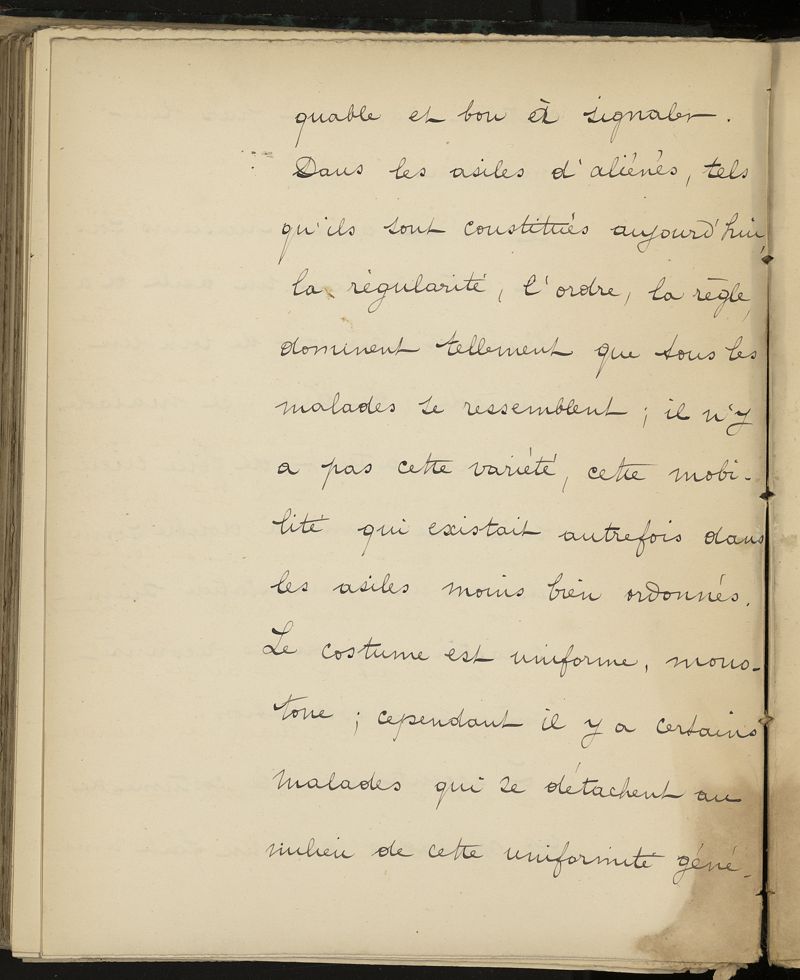 quable et bon à signaler.
Dans les asiles d'aliénés, tels
qu'ils sont constitués aujourd'hui,
la régularité, l'ordre, la règle,
dominent tellement que tous les
malades se ressemblent ; il n'y
a pas cette variété, cette mobi-
lité qui existait autrefois dans
les asiles moins bien ordonnés.
Le costume est uniforme, mono-
tone ; cependant il y a certains
malades qui se détachent au
milieu de cette uniformité géné-